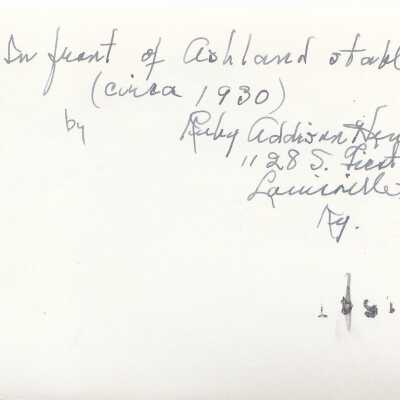 In front of Ashland stabl
(circa 1930)
by Ruby Addison Hen
1128 S. First
Louisville
Ky.